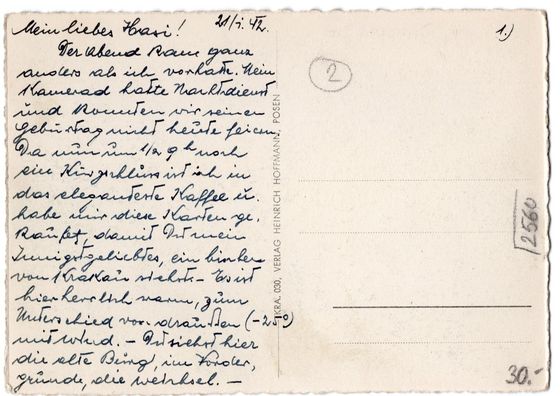 Mein liebes Hasi! 21/I. 42.
Der Abend kam ganz
anders als ich vorhatte. Mein
Kamerad hatte Nachtdienst
und konnten wir seinen
Geburtstag nicht heute feiern
Da nun um 1/2 9 h noch
ein Kurzschluss ist ich in
das eleganteste Kaffee u.
habe mir diese Karten ge,
kauft, damit Du mein
Innigstgeliebtes, ein bischen
von Krakau siehst. - Es ist
hier herrlich warm, zum
Unterschied von draußen (-25°)
mit Wind. - Du siehst hier
die alte Burg, im Vorder,
grunde, die Weichsel. -
KRA. 030, VERLAG HEINRICH HOFFMANN, POSEN
1.)
2
2560
30.-